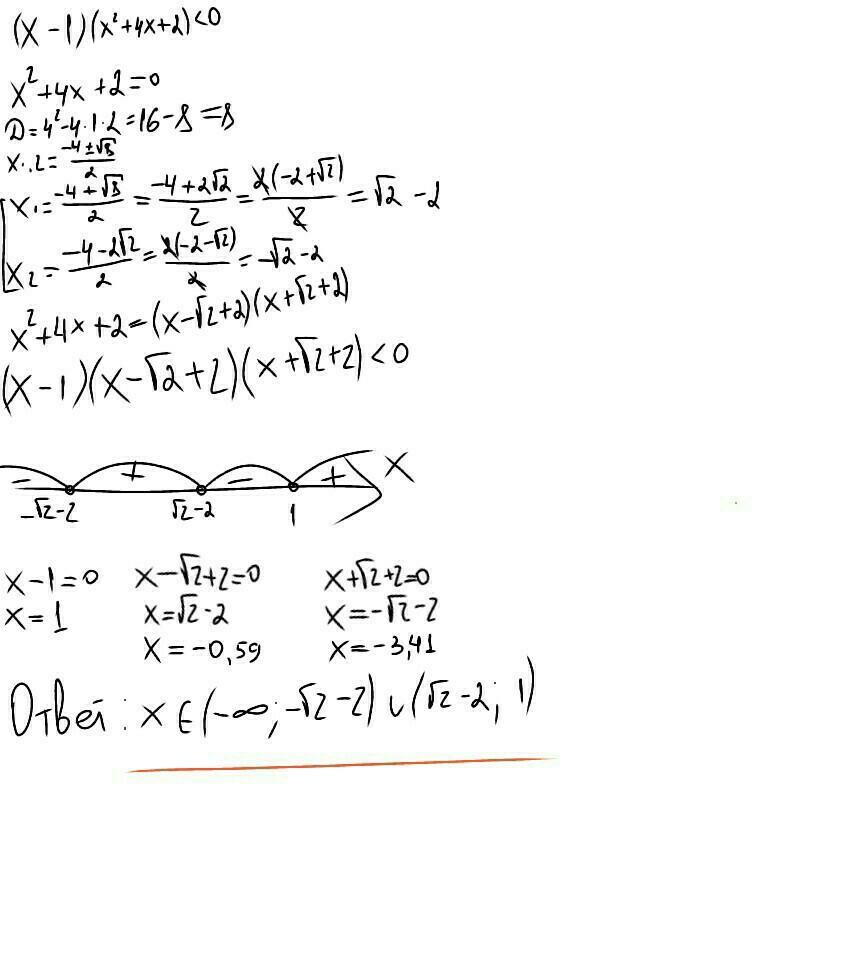 (x-1)(x²+4x+2)<0
x²+4x+2=0
D=4²-4·1·2=16-8=8
x1,2=(-4±√8)/2
x1=(-4+√8)/2=(-4+2√2)/2=2(-2+√2)/2=√2-2
x2=(-4-2√2)/2=2(-2-√2)/2=-√2-2
x²+4x+2=(x-√2+2)(x+√2+2)
(x-1)(x-√2+2)(x+√2+2)<0
- + - + x
-√2-2 √2-2 1
x-1=0 x-√2+2=0 x+√2+2=0
x=1 x=√2-2 x=-√2-2
x=-0,59 x=-3,41
Ответ: x∈(-∞;-√2-2)∪(√2-2; 1)